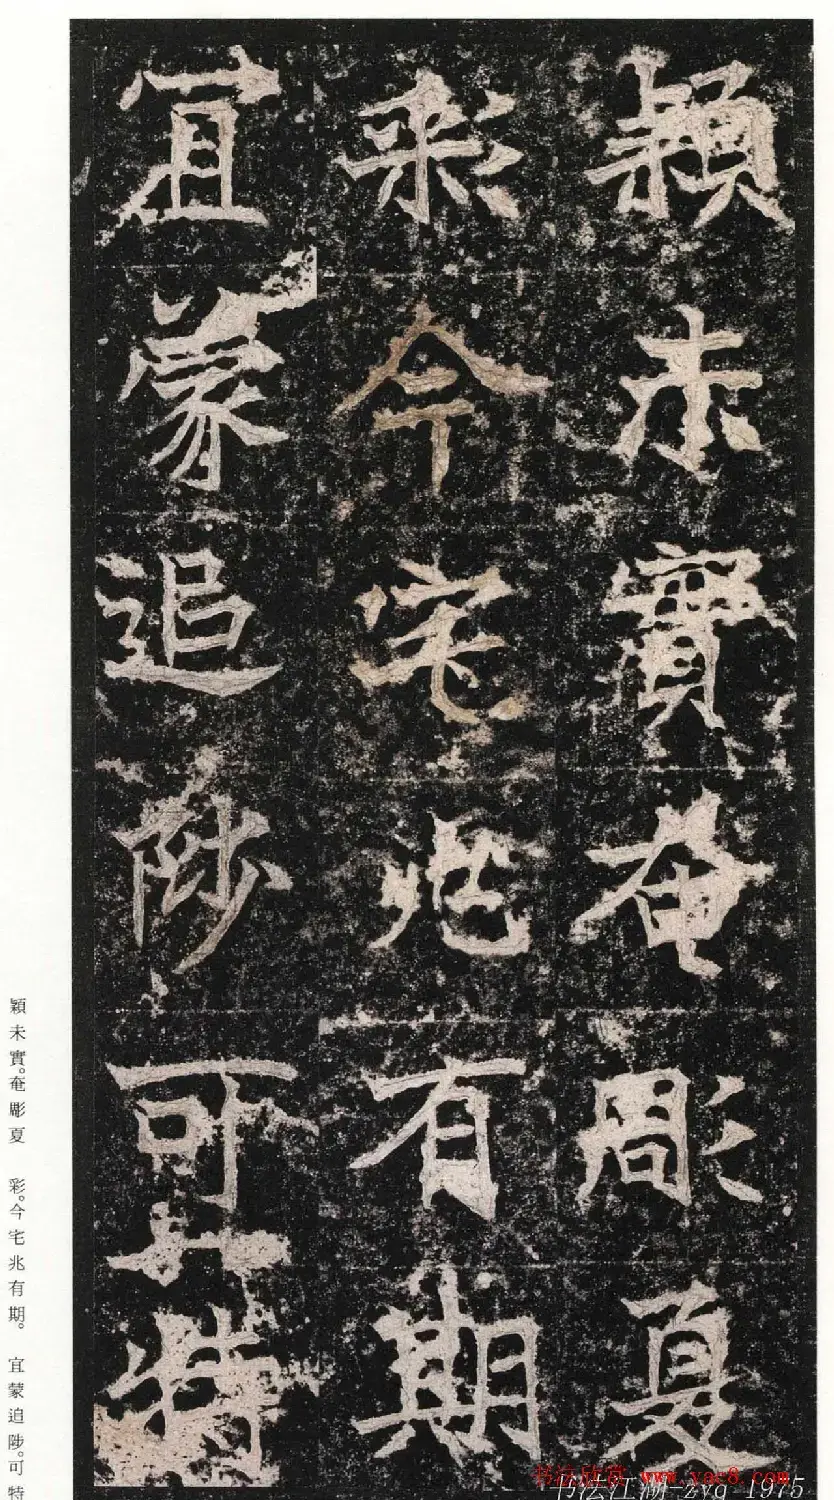 穎未實奄彫夏
彩今宅兆有期
宜蒙追陟可特
穎未實。奄彫夏　彩。今宅兆有期。　宜蒙追陟。可特
书法欣赏 www.yac8.com
书法江湖-zyg-1975